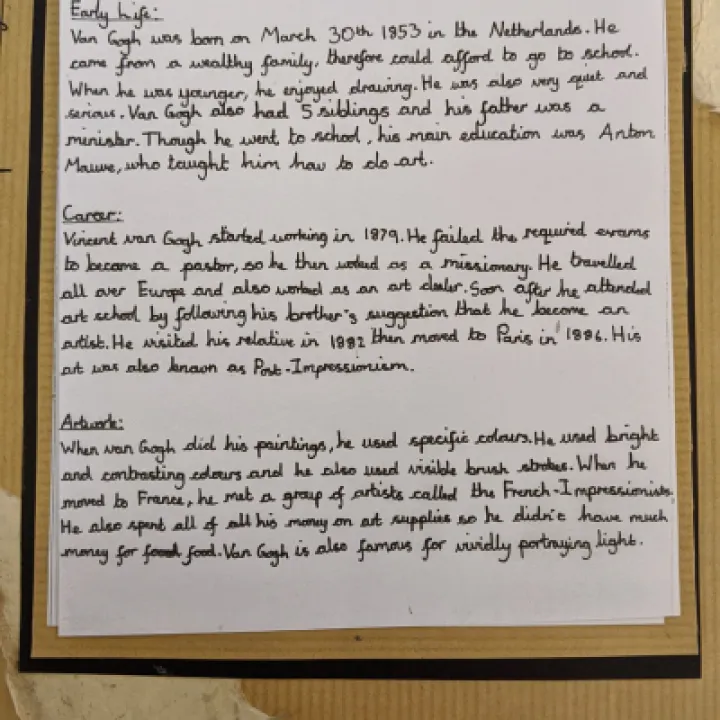 Early Life:
Van Gogh was born on March 30th 1853 in the Netherlands. He
came from a wealthy family, therefore could afford to go to school.
When he was younger, he enjoyed drawing. He was also very quiet and
serious. Van Gogh also had 5 siblings and his father was a
minister. Though he went to school, his main education was Anton
Mauve, who taught him how to do art.
Career:
Vincent van Gogh started working in 1879. He failed the required exams
to become a pastor, so he then worked as a missionary. He travelled
all over Europe and also worked as an art dealer. Soon after he attended
art school by following his brother's suggestion that he become an
artist. He visited his relative in 1882 then moved to Paris in 1886. His
art was also known as Post-Impressionism.
Artwork:
When van Gogh did his paintings, he used specific colours. He used bright
and contrasting colours and he also used visible brush strokes. When he
moved to France, he met a group of artists called the French-Impressionists.
He also spent all of all his money on art supplies so he didn't have much
money for food. Van Gogh is also famous for vividly portraying light.